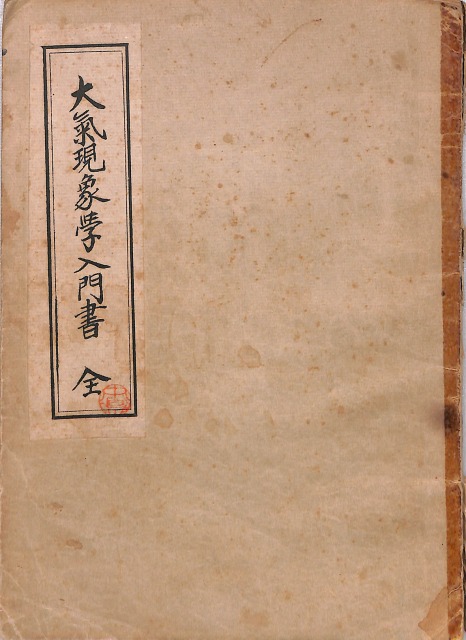 大氣現象学入門書 全